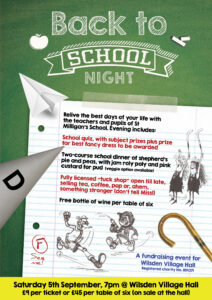 Back to
SCHOOL
NIGHT
Relive the best days of your life with
the teachers and pupils of St
Milligan's School. Evening includes:
School quiz, with subject prizes plus prize
for best fancy dress to be awarded
Two-course school dinner of shepherd's
pie and peas, with jam roly poly and pink
custard for pud (veggie option available)
Fully licensed "tuck shop" open till late,
selling tea, coffee, pop or, ahem,
something stronger (don't tell Miss!)
Free bottle of wine per table of six
F
See
me!
A fundraising event for
Wilsden Village Hall
Registered charity No.
Saturday 5th September, 7pm @ Wilsden Village Hall
£9 per ticket or £45 per table of six (on sale at the hall)